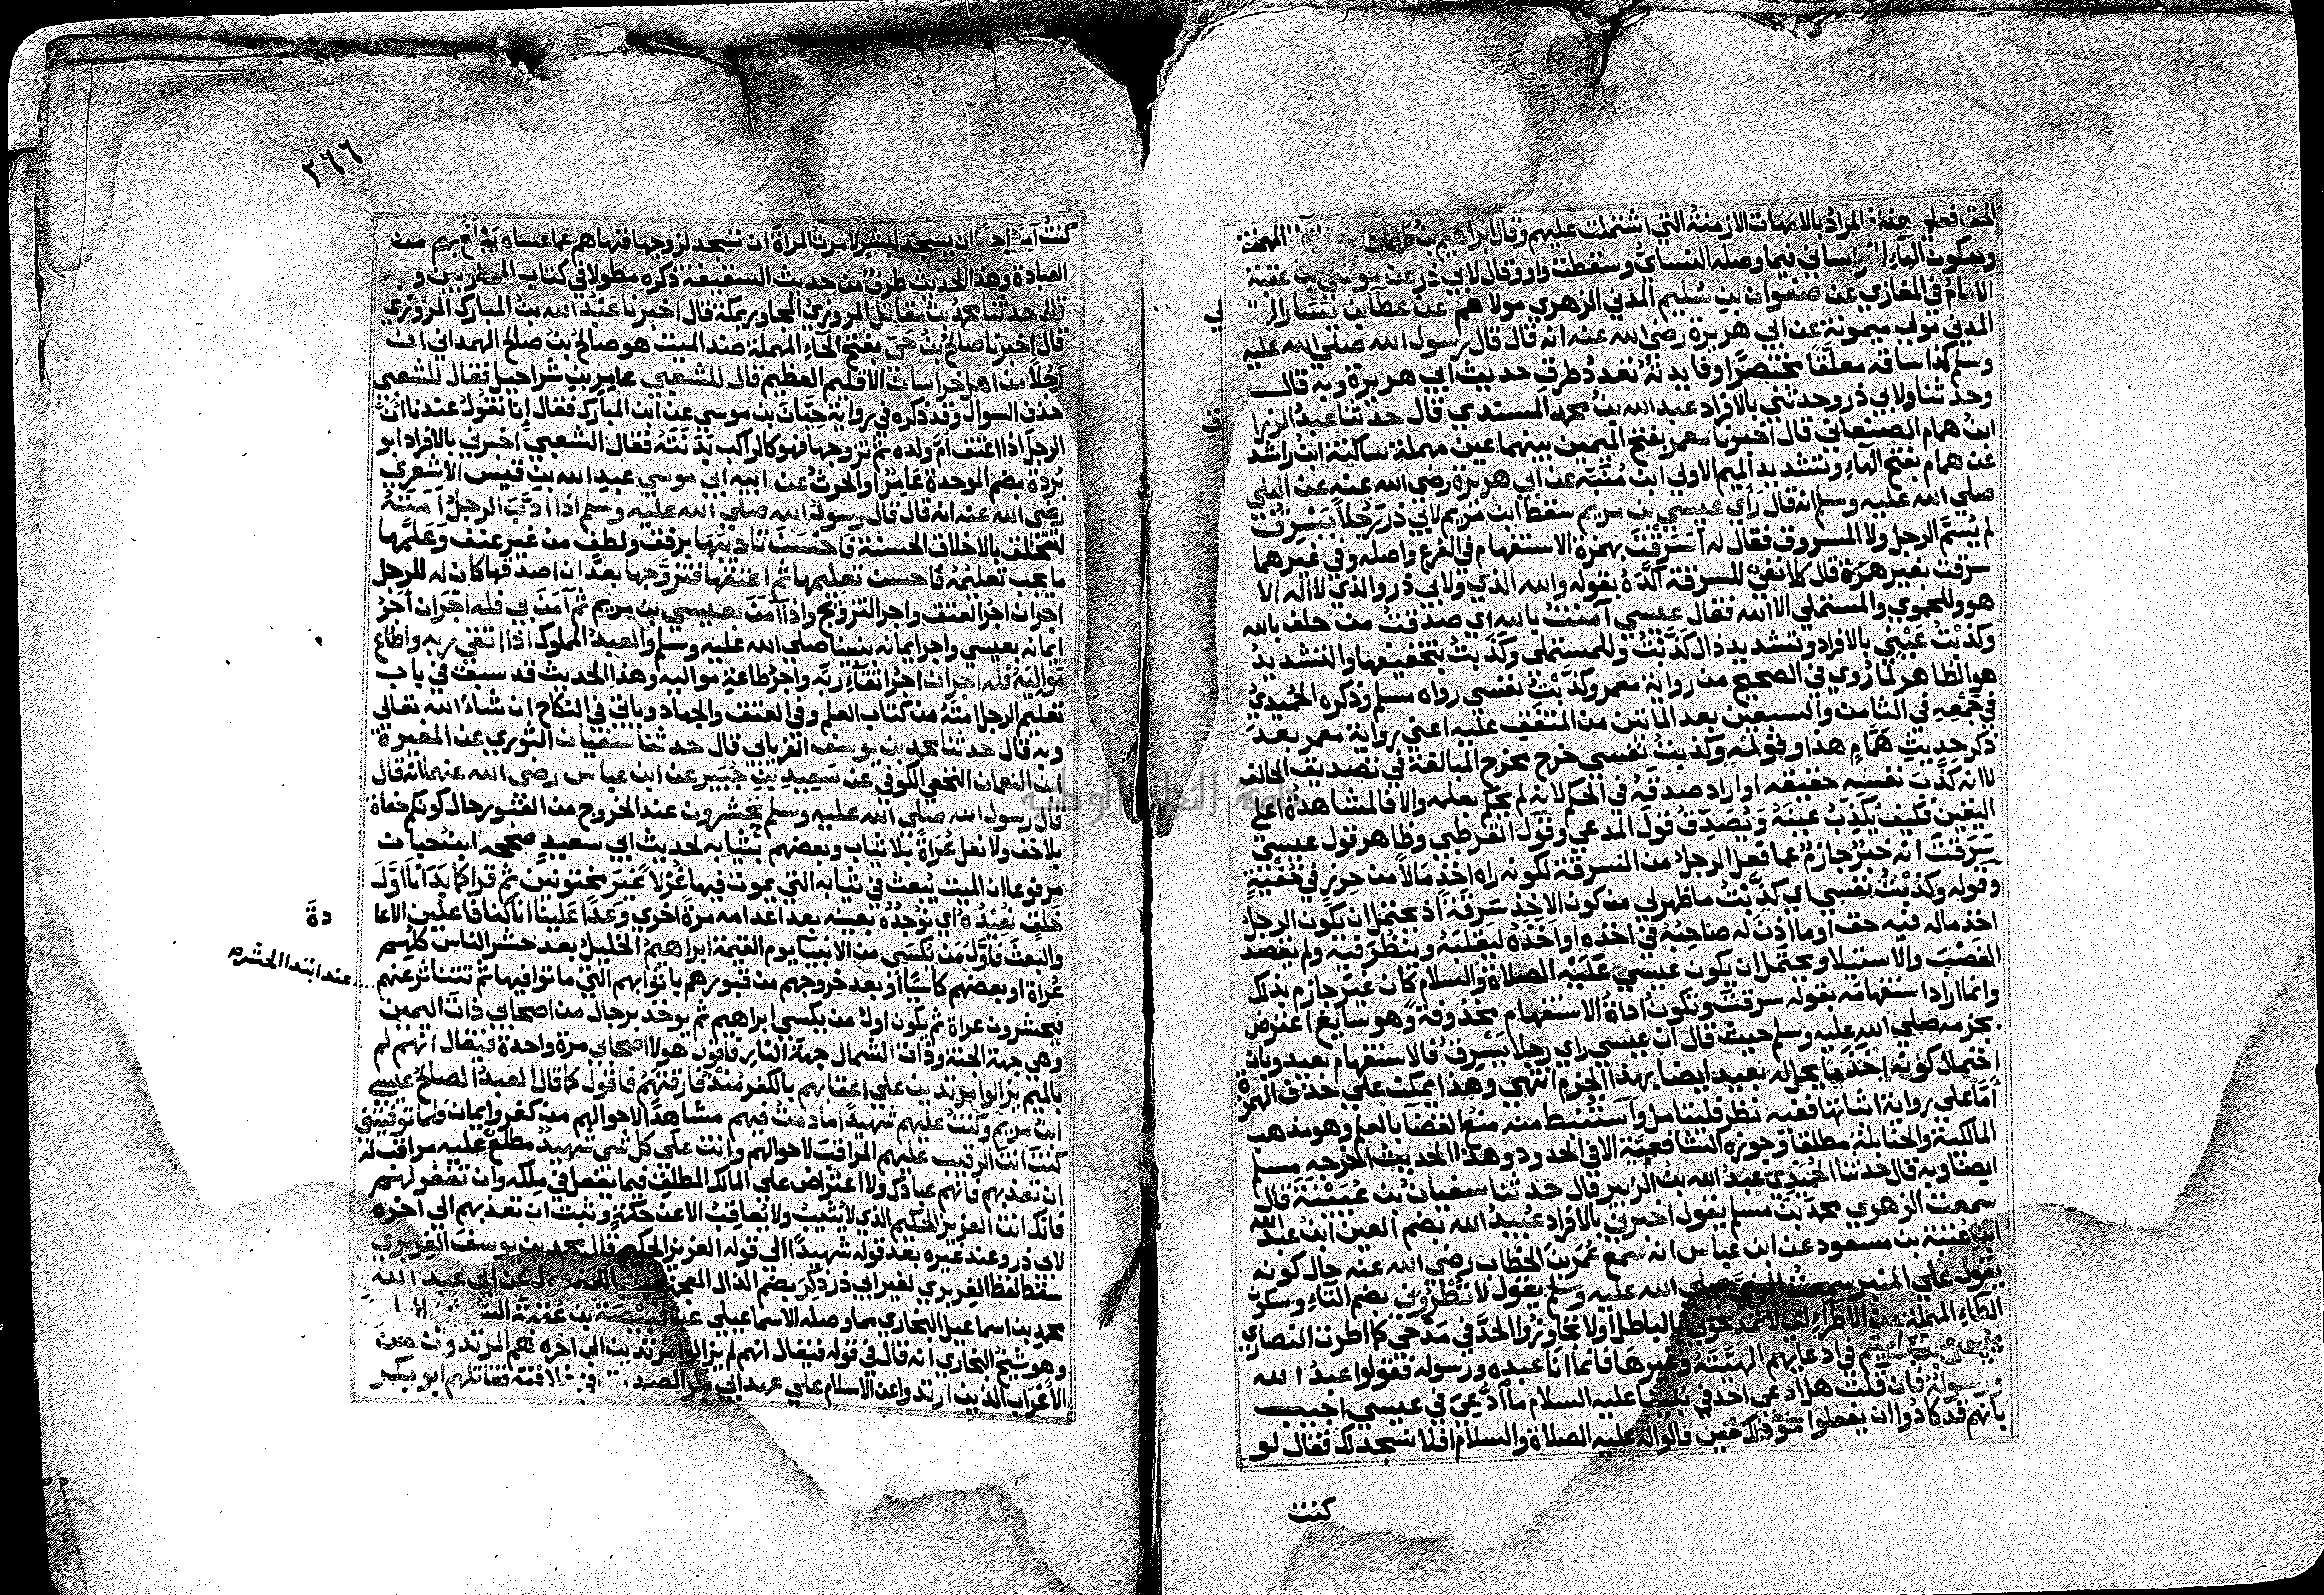 المراد بالامهات الازمنة التي اشتملت عليهم وقال ابراهيم بن طهمان
وسكون الهاء فيما وصله النساي وسقطت واو وقال لابي ذر عن موسي بن عقبة
الامام في المغازي عن صفوان بن سليم المدني الزهري مولاهم عن عطاء بن يسار
المدني مولي ميمونة عن ابي هريرة رضي الله عنه انه قال قال رسول الله صلي الله عليه
وسلم كذا ساقه معلقا مختصرا وفايدته تعدد طرق حديث ابي هريرة وبه قال
وحدثنا ولابي ذر وحدثني بالافراد عبد الله بن محمد المسندي قال حدثنا عبد الرزا
ق
ابن همام الصنعاني قال اخبرنا معمر بفتح الميمين بينهما عين مهملة ساكنة ابن راشد
عن همام بفتح الهاء وتشديد الميم الاولي ابن منبه عن ابي هريرة رضي الله عنه عن النبي
صلي الله عليه وسلم انه قال راي عيسي بن مريم سقط ابن مريم لابي ذر رجلا يسرق
لم يسم الرجل ولا المسروق فقال له اسرقت بهمزة الاستفهام في الفرع واصله وفي غيرهما
سرقت بغير همزة قال كلا نفي للسرقة اكده بقوله والله الذي ولابي ذر والذي لا اله الا
هو وللحموي والمستملي الا الله فقال عيسي آمنت بالله اي صدقت من حلف بالله
وكذبت عيني بالافراد وتشديد ذال كذبت وللمستملي وكذبت بتخفيفها والتشديد
هو الظاهر لما روي في الصحيح من رواية معمر وكذبت نفسي رواه مسلم وذكره الحميدي
في جمعه في الثامن والسبعين بعد الماتين من المتفق عليه اعني رواية معمر بعد
ذكر حديث همام هذا وقوله وكذبت نفسي خرج مخرج المبالغة في تصديق الحالف
لا انه كذب نفسه حقيقة او اراد صدقه في الحكم لانه لم يحكم بعلمه والا فالمشاهدة اعلي
اليقين فكيف يكذب عينه ويصدق قول المدعي وقول القرطبي وظاهر قول عيسي
سرقت انه خبر جازم عما فعل الرجل من السرقة لكونه راه اخذ مالا من حرز في خفية
وقوله وكذبت نفسي اي كذبت ما ظهر لي من كون الاخذ سرقة اذ يحتمل ان يكون الرجل
اخذ ماله فيه حق او ما اذن له صاحبه في اخذه او اخذه ليقلبه وينظر فيه ولم يقصد
الغضب والاستيلا ويحتمل ان يكون عيسي عليه الصلاة والسلام كان غير جازم بذلك
وانما اراد استفهامه بقوله سرقت وتكون اداة الاستفهام محذوفة وهو سايغ اعترض
بجزمه صلي الله عليه وسلم حيث قال ان عيسي راي رجلا يسرق فالاستفهام بعيد وبان
احتمال كونه اخذ ما يحل له بعيد ايضا بهذا الجزم انتهي وهذا يمكن علي حذف الهمزة
اما علي رواية اثباتها ففيه نظر فليتامل واستنبط منه منع القضا بالعلم وهو مذهب
المالكية والحنابلة مطلقا وجوزه الشافعية الا في الحدود وهذا الحديث اخرجه مسلم
ايضا وبه قال حدثنا الحميدي عبد الله بن الزبير قال حدثنا سفيان بن عيينة قال
سمعت الزهري محمد بن مسلم يقول اخبرني بالافراد عبيد الله بضم العين ابن عبد الله
ابن عتبة بن مسعود عن ابن عباس انه سمع عمر بن الخطاب رضي الله عنه حال كونه
يقول علي المنبر سمعت النبي صلي الله عليه وسلم يقول لا تطروني بضم التاء وسكون
الطاء المهملة من الاطراء اي لا تمدحوني بالباطل او لا تجاوزوا الحد في مدحي كما اطرت النصاري
في ادعائهم الهيته وغيرها فانما انا عبده ورسوله فقولوا عبد الله
ورسوله فان قلت هل ادعي احد في نبينا عليه السلام ما ادعي في عيسي اجيب
بانهم قد كادوا ان يفعلوا نحو ذلك حين قالوا له عليه الصلاة والسلام افلا نسجد لك فقال لو
كنت
٢٦٦
كنت آمرا احدا ان يسجد لبشر لامرت المراة ان تسجد لزوجها فنهاهم عما عساه يبلغ بهم من
العبادة وهذا الحديث طرف من حديث السقيفة ذكره مطولا في كتاب المحاربين و
قال حدثنا محمد بن مقاتل المروزي المجاور بمكة قال اخبرنا عبد الله بن المبارك المروزي
قال اخبرنا صالح بن حي بفتح الحاء المهملة ضد الميت هو صالح بن صالح الهمداني ان
رجلا من اهل خراسان الاقليم العظيم قال للشعبي عامر بن شراحيل فقال للشعبي
حذف السوال وقد ذكره في رواية حبان بن موسي عن ابن المبارك فقال انا نقول عندنا ان
الرجل اذا اعتق ام ولده ثم تزوجها فهو كالراكب بدنته فقال الشعبي اخبرني بالافراد ابو
بردة بضم الموحدة عامر او الحرث عن ابيه ابي موسي عبد الله بن قيس الاشعري
رضي الله عنه انه قال قال رسول الله صلي الله عليه وسلم اذا ادب الرجل امته
لتتخلق بالاخلاق الحسنة فاحسن تاديبها برفق ولطف من غير عنف وعلمها
ما يجب تعليمه فاحسن تعليمها ثم اعتقها فتزوجها بعد ان اصدقها كان له للرجل
اجران اجر العتق واجر التزويج واذا آمن بعيسي بن مريم ثم آمن بي فله اجران اجر
ايمانه بعيسي واجر ايمانه بنبينا صلي الله عليه وسلم والعبد المملوك اذا اتقي ربه واطاع
مواليه فله اجران اجر اتقاء ربه واجر طاعة مواليه وهذا الحديث قد سبق في باب
تعليم الرجل امته من كتاب العلم وفي العتق والجهاد وياتي في النكاح ان شاء الله تعالي
وبه قال حدثنا محمد بن يوسف الفريابي قال حدثنا سفيان الثوري عن المغيرة
ابن النعمان النخعي الكوفي عن سعيد بن جبير عن ابن عباس رضي الله عنهما انه قال
قال رسول الله صلي الله عليه وسلم تحشرون عند الخروج من القبور حال كونكم حفاة
بلا خف ولا نعل عراة بلا ثياب وبعضهم بثيابه لحديث ابي سعيد صححه ابن حبان
مرفوعا ان الميت يبعث في ثيابه التي يموت فيها غرلا غير مختونين ثم قرا كما بدانا اول
خلق نعيده اي نوجده بعينه بعد اعدامه مرة اخري وعدا علينا انا كنا فاعلين الاعا
دة
والبعث فاول من يكسي من الانبيا يوم القيمة ابراهيم الخليل بعد حشر الناس كلهم
عراة او بعضهم كاسيا او بعد خروجهم من قبورهم باثوابهم التي ماتوا فيها ثم تتناثر عنهم
عند ابتدا الحشر
فيحشرون عراة ثم يكون اول من يكسي ابراهيم ثم يوخذ برجال من اصحابي ذات اليمين
وهي جهة الجنة وذات الشمال جهة النار فاقول هولا اصحابي مرة واحدة فيقال انهم لم
بالميم يزالوا مرتدين علي اعقابهم بالكفر منذ فارقتهم فاقول كما قال العبد الصالح عيسي
ابن مريم وكنت عليهم شهيدا ما دمت فيهم مشاهدا لاحوالهم من كفر وايمان فلما توفيتني
كنت انت الرقيب عليهم المراقب لاحوالهم وانت علي كل شي شهيد مطلع عليه مراقب له
ان تعذبهم فانهم عبادك ولا اعتراض علي المالك المطلق فيما يفعل في ملكه وان تغفر لهم
فانك انت العزيز الحكيم الذي لا يثيب ولا يعاقب الا عن حكمة وثبت ان تعذبهم الي اخره
لابي ذر وعند غيره بعد قوله شهيدا الي قوله العزيز الحكيم قال محمد بن يوسف الفربري
سقط لفظ الفربري لغير ابي ذر ذكر بضم الذال المعجمة عن ابي عبد الله
محمد بن اسماعيل البخاري مما وصله الاسماعيلي عن قبيصة بن عقبة
وهو شيخ البخاري انه قال في قوله فيقال انهم لم يزالوا مرتدين الي اخره هم المرتدون من
الاعراب الذين ارتدوا عن الاسلام علي عهد ابي بكر الصديق فقاتلهم ابو بكر